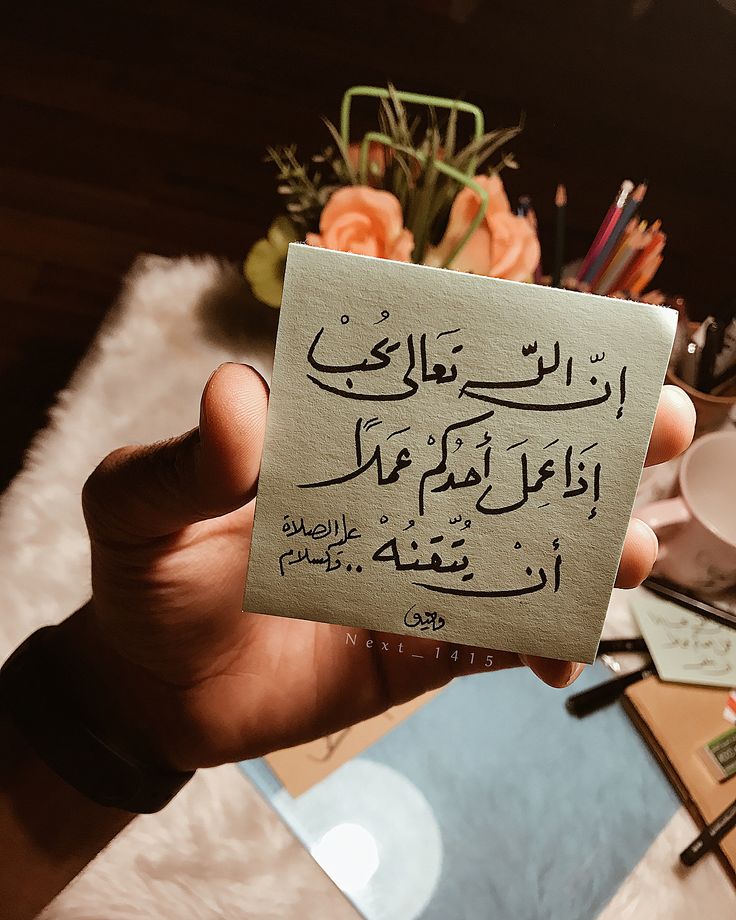 إنّ اللّه تعَالى يُحبْ
إذَا عَمِلَ أحدُكُمْ عَمَلاً
أنْ يُتّقنُهْ ..
عليه الصلاة
والسلام
Next_1415